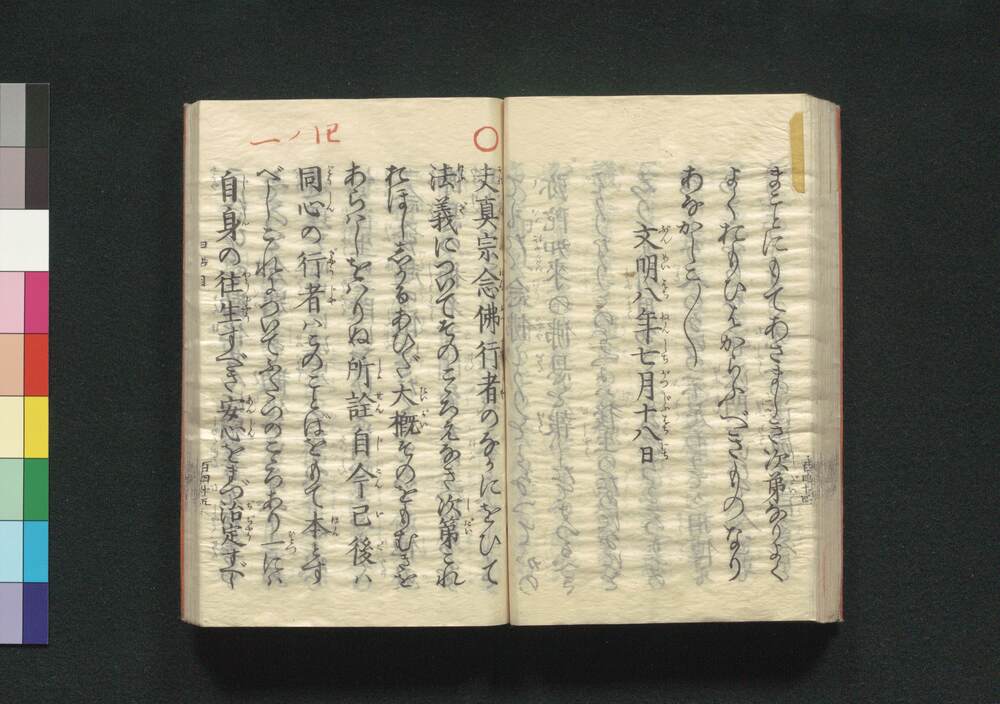 まことにもてあさましき次第なりよく
よくおもひはからふべきものなり
あなかしこ〱
文明八年七月十八日
夫真宗念佛行者のなかにをひて
法義についてそのこゝろえなき次第これ
おほししかるあひだ大概そのをもむきを
あらハしをハりぬ所詮自今已後ハ
同心の行者ハこのことばをもて本とす
べしこれについてふたつのこゝろあり一にハ
自身の往生すべき安心をまづ治定すべ